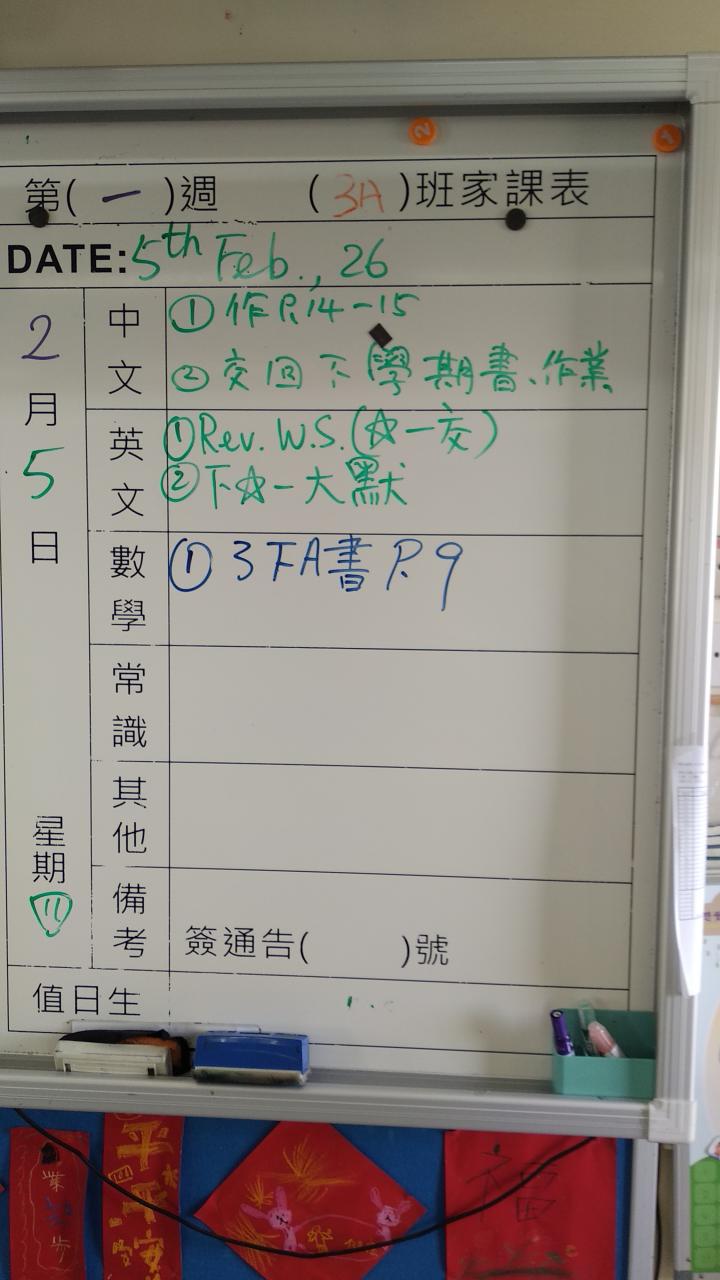 第(一)週 (3A)班家課表
DATE: 5th Feb., 26
2月5日 星期四
中文
①作P.14-15
②交回下學期書、作業
英文
①Rev. W.S.(☆一交)
②下☆一大默
數學
①3下A書P.9
常識
其他
備考
簽通告( )號
值日生
2
1
福